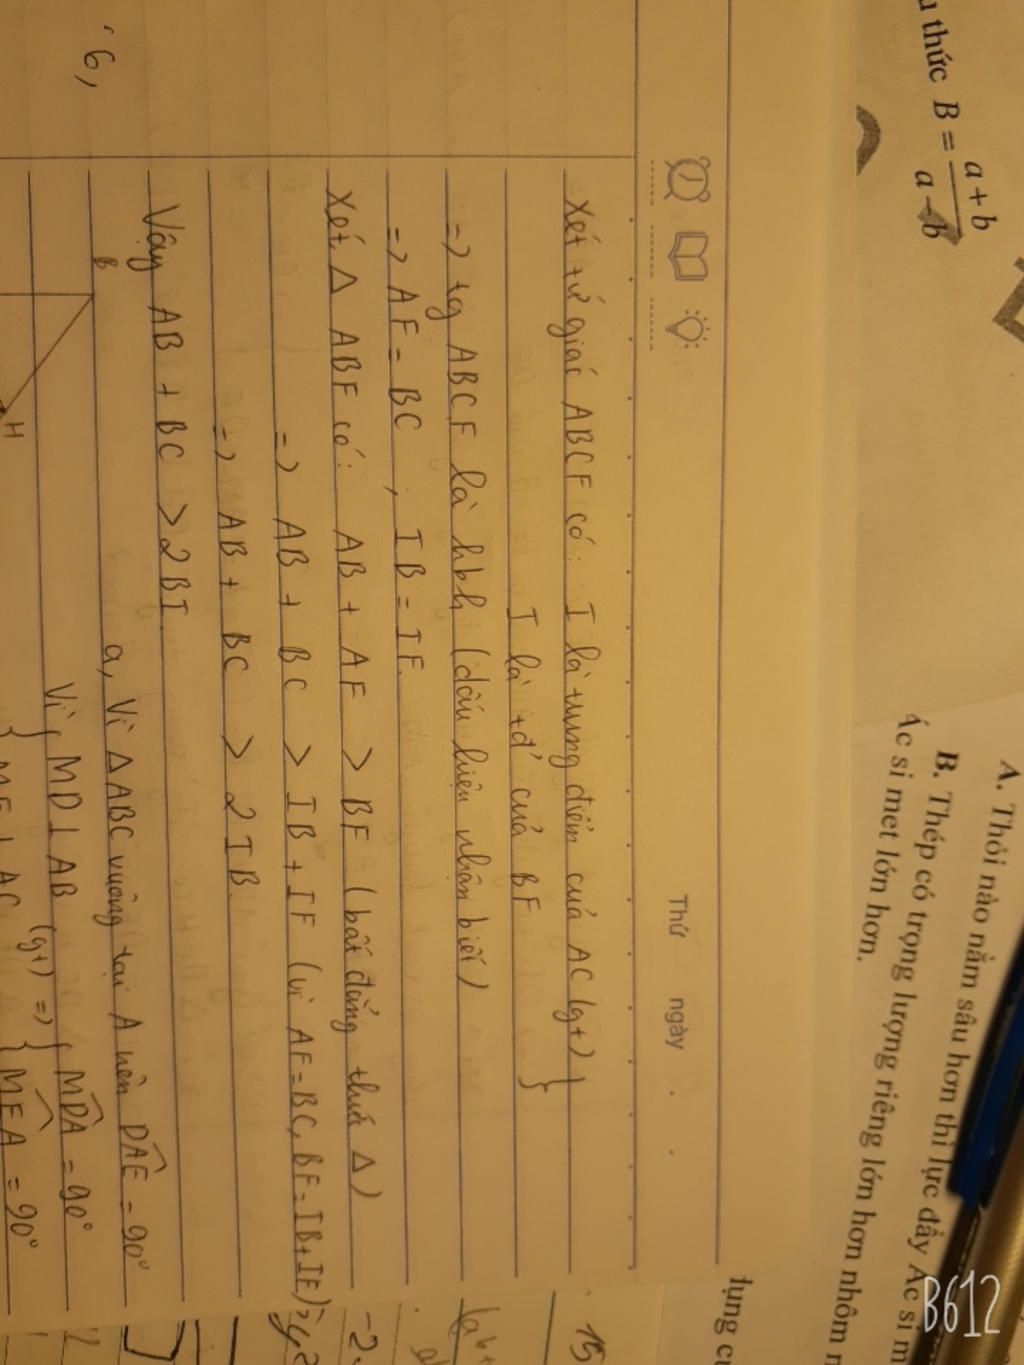 Thứ ngày
Xét tứ giác ABCF có: I là trung điểm của AC (gt) }
I là tđ của BF }
=> tg ABCF là hbh (dấu hiệu nhận biết)
=> AF = BC , IB = IF.
Xét Δ ABF có: AB + AF > BF (bất đẳng thức Δ)
=> AB + BC > IB + IF (vì AF = BC, BF = IB + IF)
=> AB + BC > 2IB.
Vậy AB + BC > 2BI.
6,
B
H
a, Vì Δ ABC vuông tại A nên DAE = 90°
Vì { MD ⊥ AB (gt) => { MDA = 90°
{ ME ⊥ AC { MEA = 90°
thức B = a + b / a - b
A. Thỏi nào nằm sâu hơn thì lực đẩy Ác si m
B. Thép có trọng lượng riêng lớn hơn nhôm
Ác si met lớn hơn.
15
B612